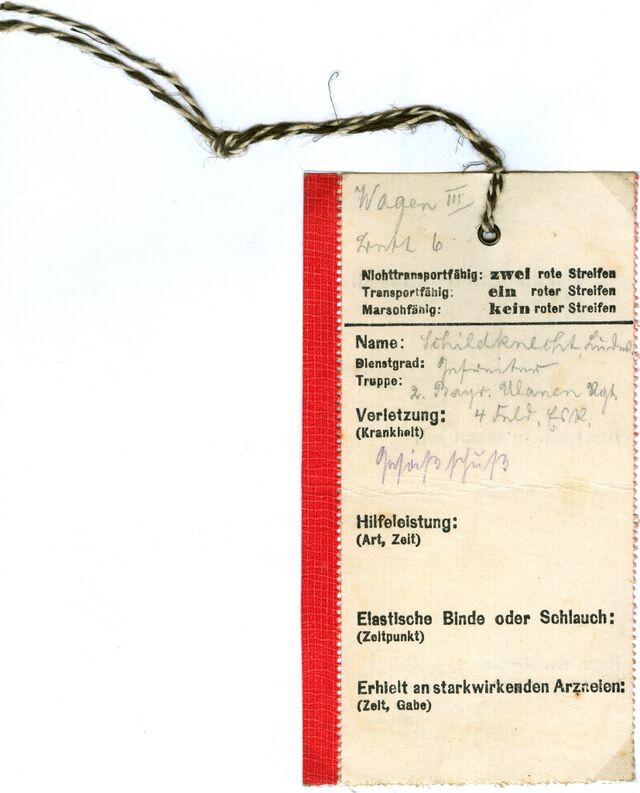 Wagen III
Bett 6
Nichttransportfähig: zwei rote Streifen
Transportfähig: ein roter Streifen
Marschfähig: kein roter Streifen
Name: Schildknecht, Ludw.
Dienstgrad: Gefreiter
Truppe: 2. Bayr. Ulanen Rgt.
Verletzung: 4 Feld. Esk.
(Krankheit)
Gesäßschuß
Hilfeleistung:
(Art, Zeit)
Elastische Binde oder Schlauch:
(Zeitpunkt)
Erhielt an starkwirkenden Arzneien:
(Zeit, Gabe)